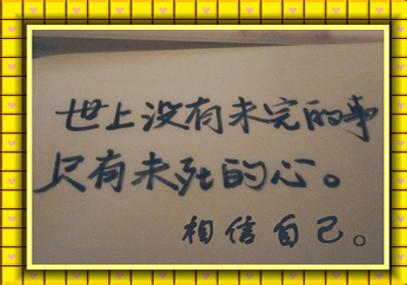 世上没有未完的事
只有未死的心。
相信自己。